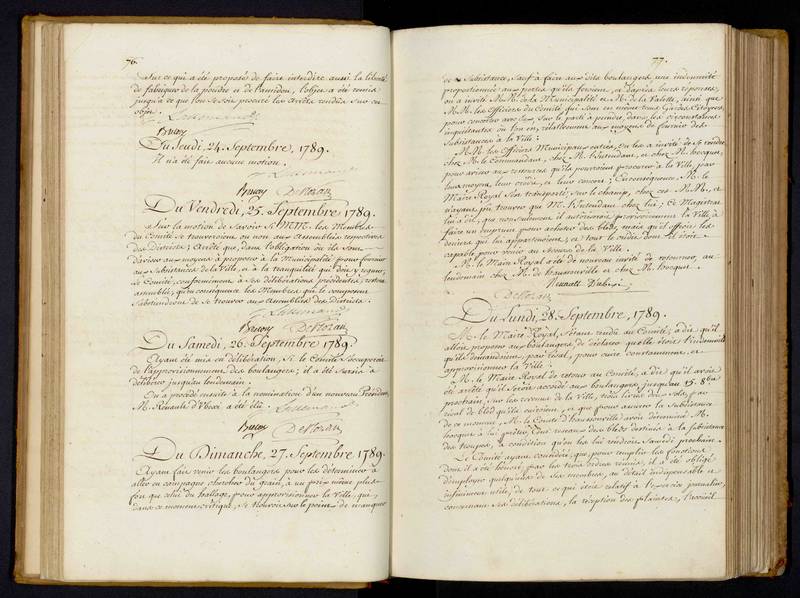 76.
Sur ce qui a été proposé de faire interdire aussi la liberté
de fabriquer de la poudre et de l'amidon, l'objet a été remis
jusqu'à ce que l'on se soit procuré les Arrêts rendus sur cet
objet.
Lallemand
Bricey
Du Jeudi, 24. Septembre, 1789.
Il n'a été fait aucune motion.
Lallemand
Bricey DeMoran
Du Vendredi, 25. Septembre 1789.
Sur la motion de Savoir Si MM. les Membres
du Comité se trouveroient ou non aux Assemblées respectives
des Districts; Arrêté que, dans l'obligation où ils sont
d'aviser aux moyens à proposer à la Municipalité pour fournir
aux Subsistances de la Ville, et à la tranquilité qui doit y regner,
le Comité, conformément à ses délibérations précédentes, restera
assemblé; qu'en conséquence les Membres qui le composent
s'abstiendront de se trouver aux Assemblées des Districts.
Lallemand
Bricey DeMoran
Du Samedi, 26. Septembre 1789.
Ayant été mis en délibération, Si le Comité s'occuperoit
de l'approvisionnement des boulangers; il a été Sursis à
délibérer jusqu'au lendemain.
On a procédé ensuite à la nomination d'un nouveau Président,
M. Renault d'Ubexi a été élu. Lallemand
Bricey DeMoran
Du Dimanche, 27. Septembre 1789.
Ayant fait venir les boulangers pour les déterminer à
aller en campagne, chercher du grain, à un prix même plus
fort que celui du hallage, pour approvisionner la Ville, qui,
dans ce moment critique, se trouvoit sur le point de manquer
77.
de Subsistance, Sauf à faire aux dits boulangers, une indemnité
proportionnée aux pertes qu'ils feroient, et d'après leurs réponses,
on a invité MM. de la Municipalité et M. de la Valette, ainsi que
MM. les Officiers du Comité qui sont en même tems Gardes Citoyens
pour concerter avec eux, Sur le parti à prendre, dans les circonstances
inquiétantes où l'on est, relativement aux moyens de fournir des
Subsistances à la Ville.
MM. les Officiers Municipaux entrés, on les a invité de se rendre
chez M. le Commandant, chez M. l'Intendant, et chez M. hocquet,
pour aviser aux ressources qu'ils pourroient procurer à la Ville, par
leur moyen, leur crédit, et leur concours; En conséquence, M. le
Maire Royal s'est transporté, sur le champ, chez ces MM., et
n'ayant pu trouver que M. l'Intendant chez lui; Ce Magistrat
lui a dit, que non seulement il autorisoit provisoirement la Ville, à
faire un emprunt pour acheter des bleds, mais qu'il offroit les
deniers qui lui appartenoient, et tout le crédit dont il étoit
capable pour venir au secours de la Ville.
M. le Maire Royal a été de nouveau invité de retourner, au
lendemain chez M. de haussonville et chez M. hocquet.
Renault Dubexi
DeMoran
Du Lundi, 28. Septembre, 1789.
M. le Maire Royal, S'étant rendu au Comité, a dit qu'il
alloit proposer aux boulangers de déclarer quelle étoit l'indemnité
qu'ils demandoient, par résal, pour cuire constamment, et
approvisionner la Ville.
M. le Maire Royal de retour au Comité, a dit qu'il avoit
été arrêté qu'il seroit accordé aux boulangers, jusqu'au 15. 8bre
prochain, sur les revenus de la Ville, trois livres dix sols, par
résal de bled qu'ils cuiroient, et que pour assurer la subsistance
de ce moment, M. le Comte d'haussonville avoit déterminé M.
hocquet à lui prêter, Cent résaux des bleds destinés à la subsistance
des troupes, à condition qu'on les lui rendroit Samedi prochain.
Le Comité ayant considéré que pour remplir les fonctions
dont il a été honoré par les trois ordres réunis, il a été obligé
d'employer quelques uns de ses membres, au détail indispensable et
infiniment utile, de tout ce qui étoit relatif à l'exercice journalier,
concernant ses délibérations, la réception des plaintes, l'accueil